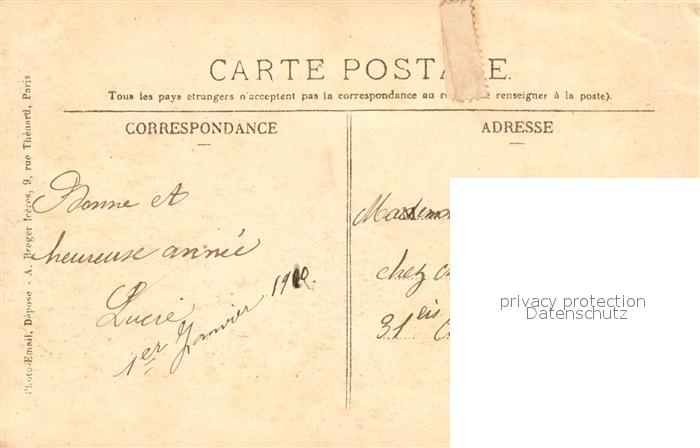 CARTE POSTALE.
Tous les pays etrangers n'acceptent pas la correspondance au renseigner à la poste).
CORRESPONDANCE
ADRESSE
Photo-Email, Depose - A. Breger frères, 9, rue Thénard, Paris
Bonne et
heureuse année
Lucie
1er Janvier
chez
31 bis
privacy protection
Datenschutz